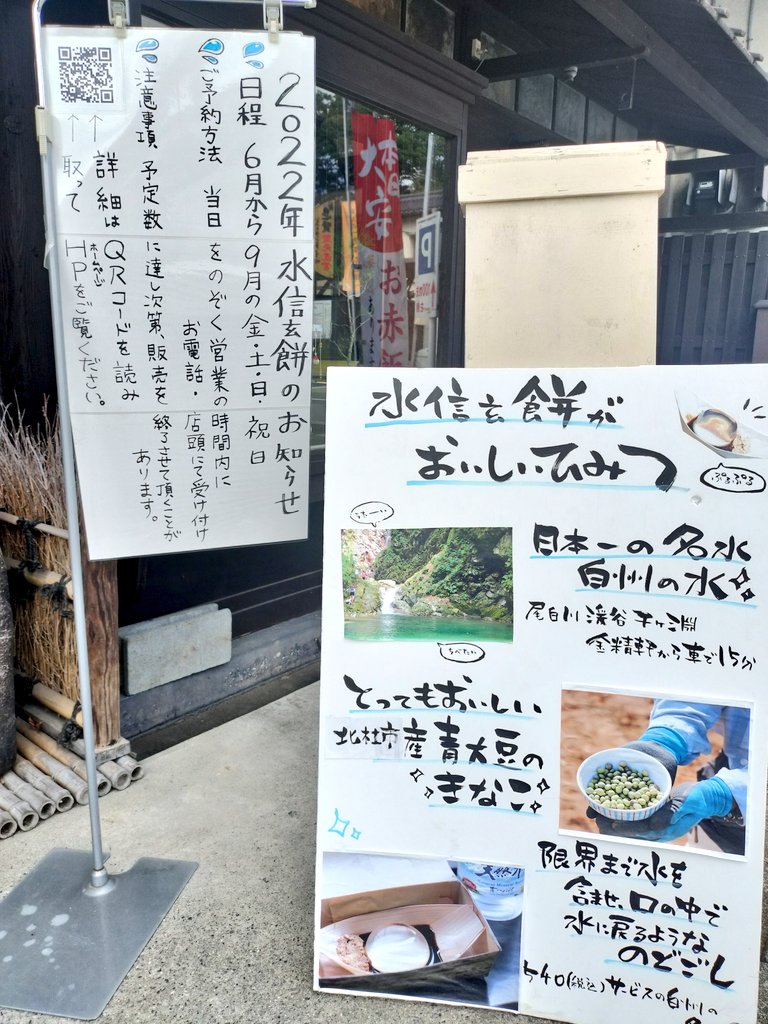 2022年 水信玄餅のお知らせ
日程 6月から9月の金・土・日・祝日
ご予約方法 当日をのぞく営業の時間内に
お電話・店頭にて受け付け
注意事項 予定数に達し次第、販売を終了させて頂くことが
あります。
↑詳細はQRコードを読み
↑取ってHPをご覧ください。
ホームページ
本日
大安
お赤飯
あります
P
水信玄餅が
おいしいひみつ
ぷるぷる
日本一の名水
白州の水
尾白川渓谷 千ヶ淵
金精軒から車で15分
つめたい
とってもおいしい
北杜市産青大豆の
きなこ
天然
限界まで水を
含ませ、口の中で
水に戻るような
のどごし
540(税込)サービスの白州の